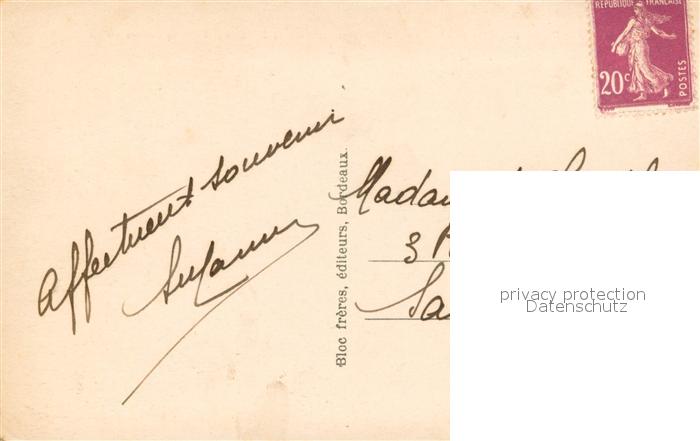 RÉPUBLIQUE FRANÇAISE
20c
POSTES
Affectueux souvenir
Suzanne
Bloc frères, éditeurs, Bordeaux.
3
privacy protection
Datenschutz